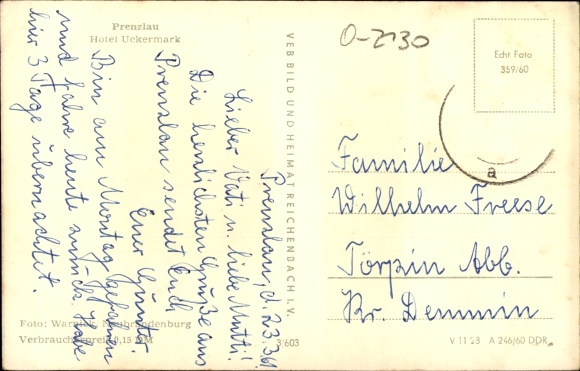 Prenzlau
Hotel Uckermark
Prenzlau, d. 23.3.61
Lieber Vati u. liebe Mutti!
Die herzlichsten Grüße aus
Prenzlau sendet Euch
Euer Günter.
Bin am Montag gefahren
und fahre heute zurück. Habe
hier 3 Tage übernachtet.
Foto: Neubrandenburg
Verbraucherpreis 0,15 DM
VEB BILD UND HEIMAT REICHENBACH I. V.
3/603
O-2130
Echt Foto
359/60
a
Familie
Wilhelm Freese
Törpin Abb.
Kr. Demmin
V 11 28 A 246/60 DDR